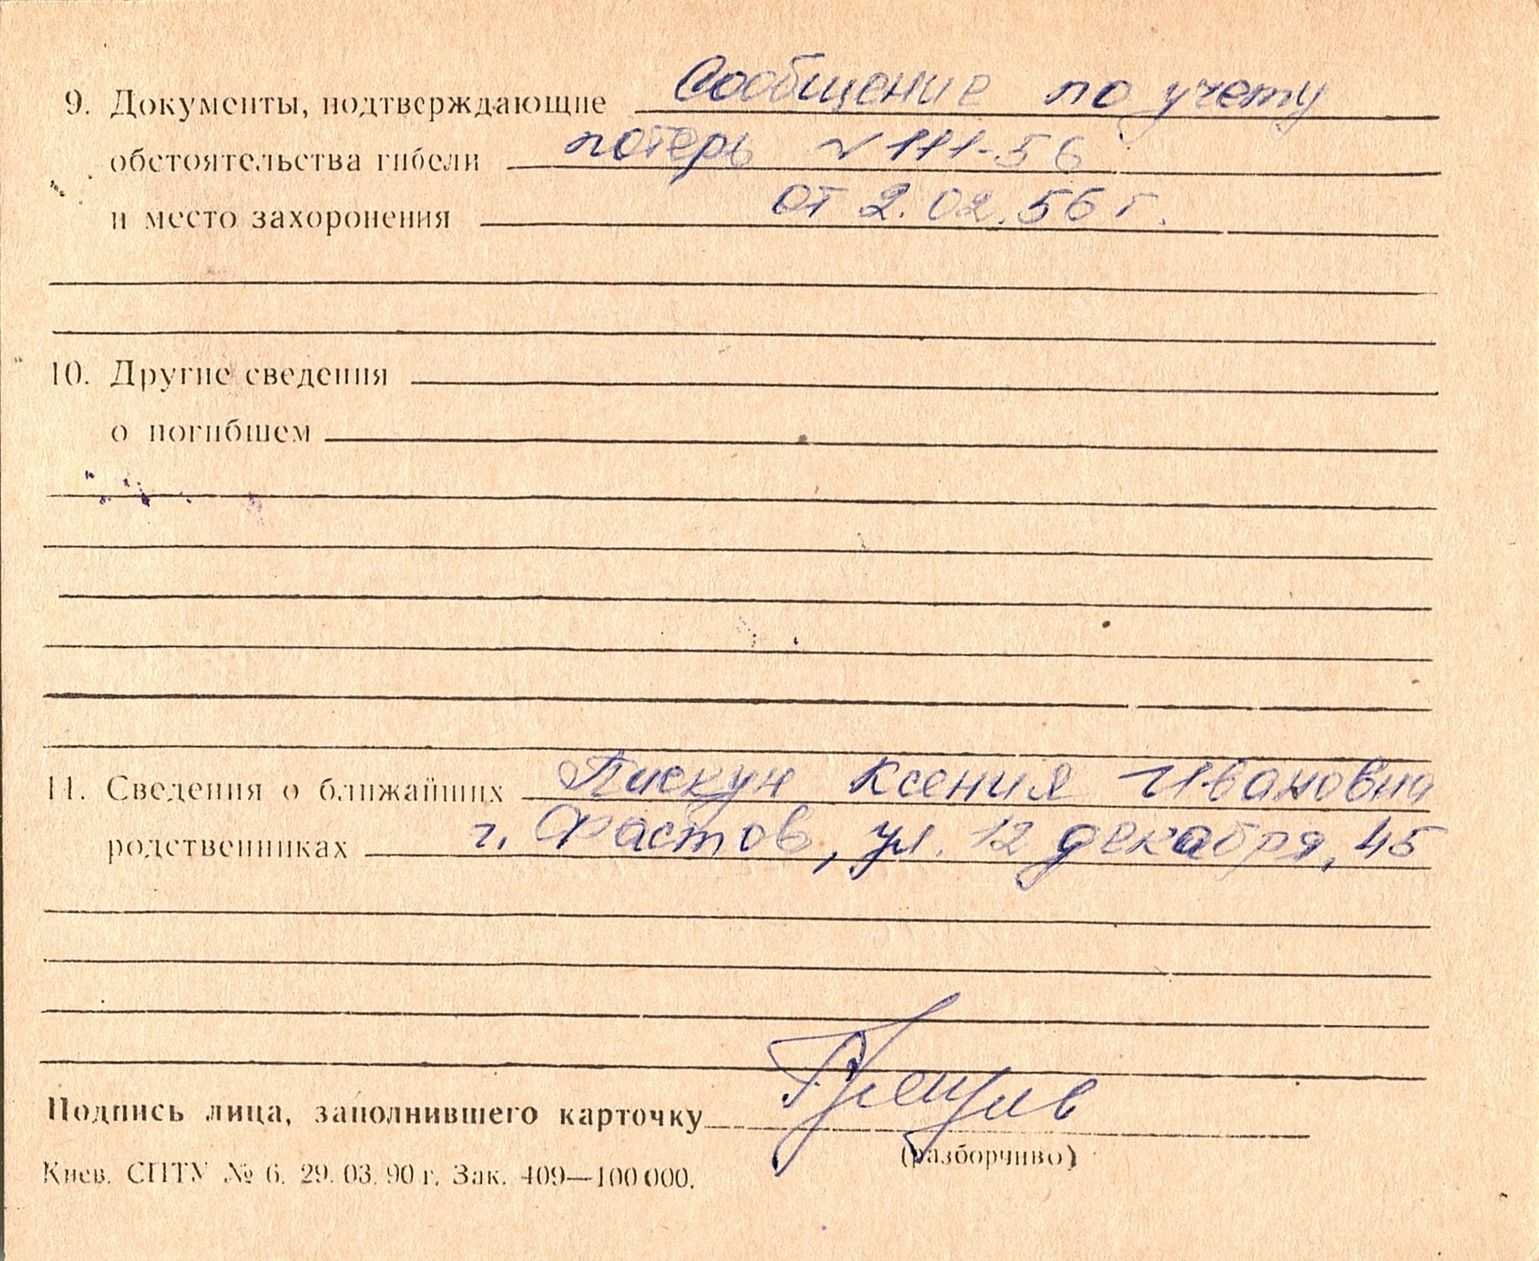 9. Документы, подтверждающие Сообщение по учету
обстоятельства гибели потерь № 111-56
и место захоронения от 2.02.56 г.
10. Другие сведения
о погибшем
11. Сведения о ближайших Пискун Ксения Ивановна
родственниках г. Фастов, ул. 12 декабря, 45
Подпись лица, заполнившего карточку
(разборчиво)
Киев. СПТУ № 6. 29. 03. 90 г. Зак. 409—100 000.